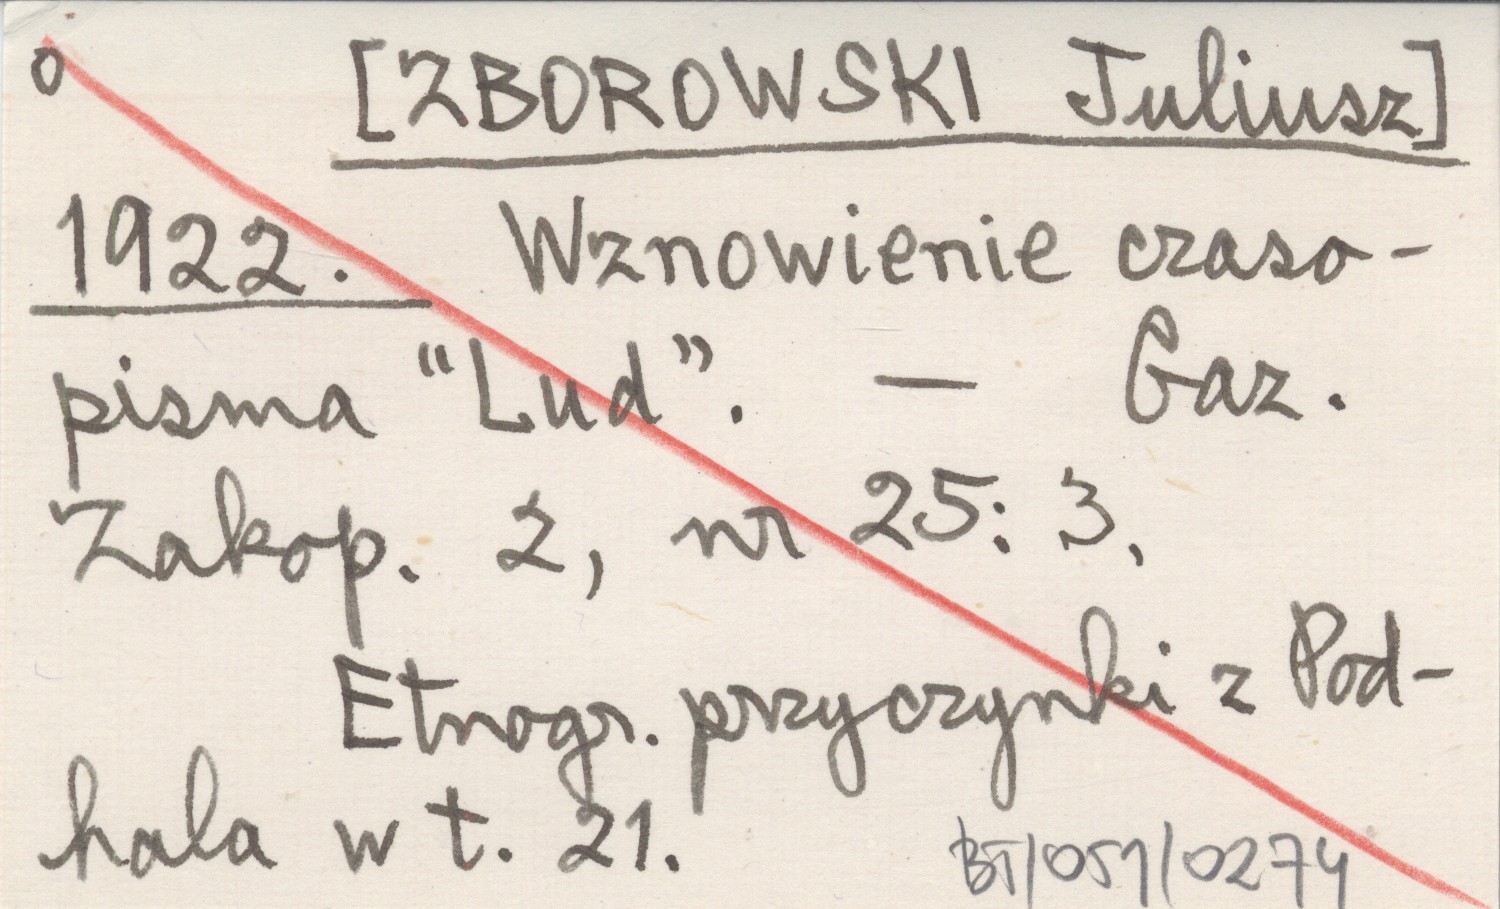 o [ZBOROWSKI Juliusz]
1922. Wznowienie czaso-
pisma “Lud”. — Gaz.
Zakop. 2, nr 25: 3.
Etnogr. przyczynki z Pod-
hala w t. 21.
BT/051/0274